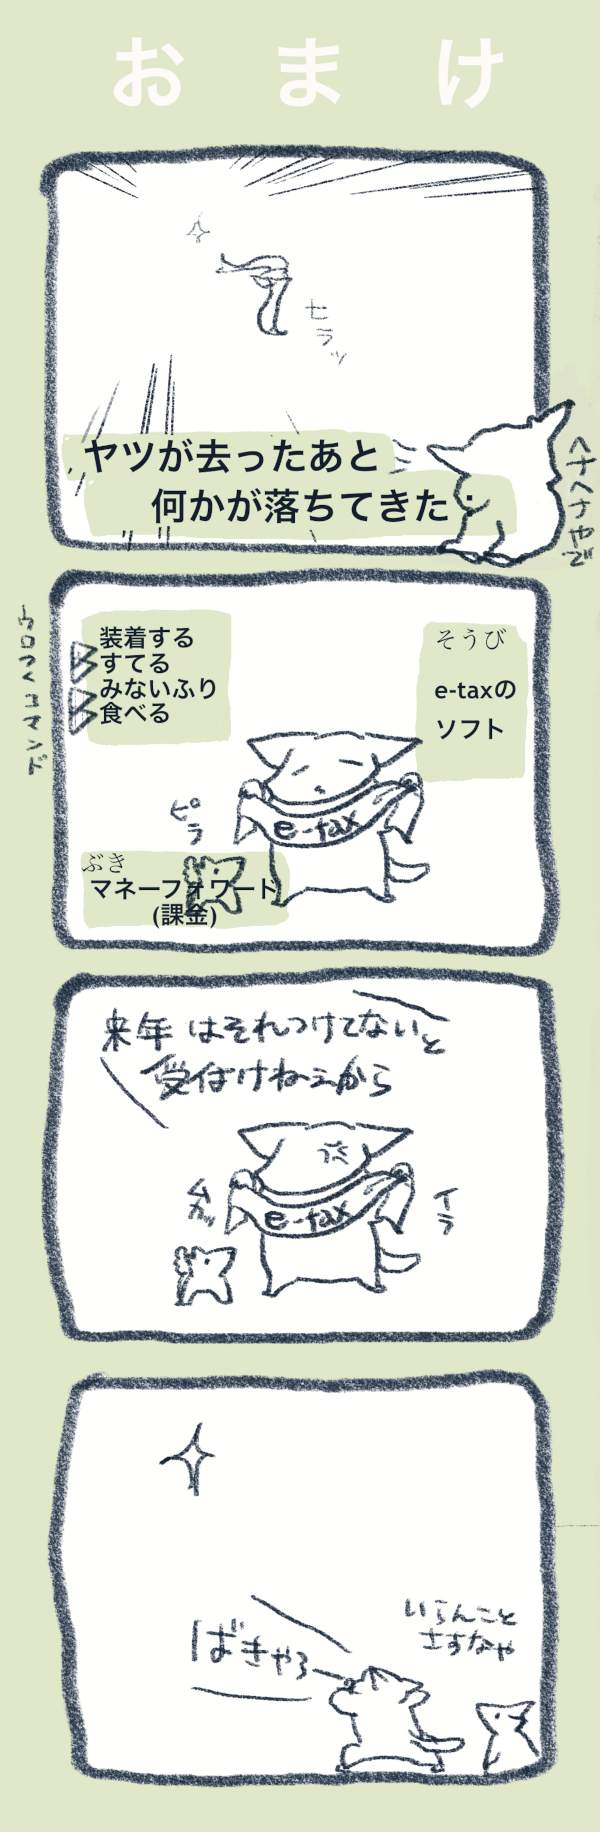 おまけ
ヒラッ
ヤツが去ったあと
何かが落ちてきた
ヘナヘナやで
ウロつくコマンド
装着する
すてる
みないふり
食べる
そうび
e-taxの
ソフト
ピラ
e-tax
ぶき
マネーフォワード
(課金)
来年はそれつけてないと
受付けねぇから
イラ
e-tax
ばきゃろー
いらんこと
さすなや